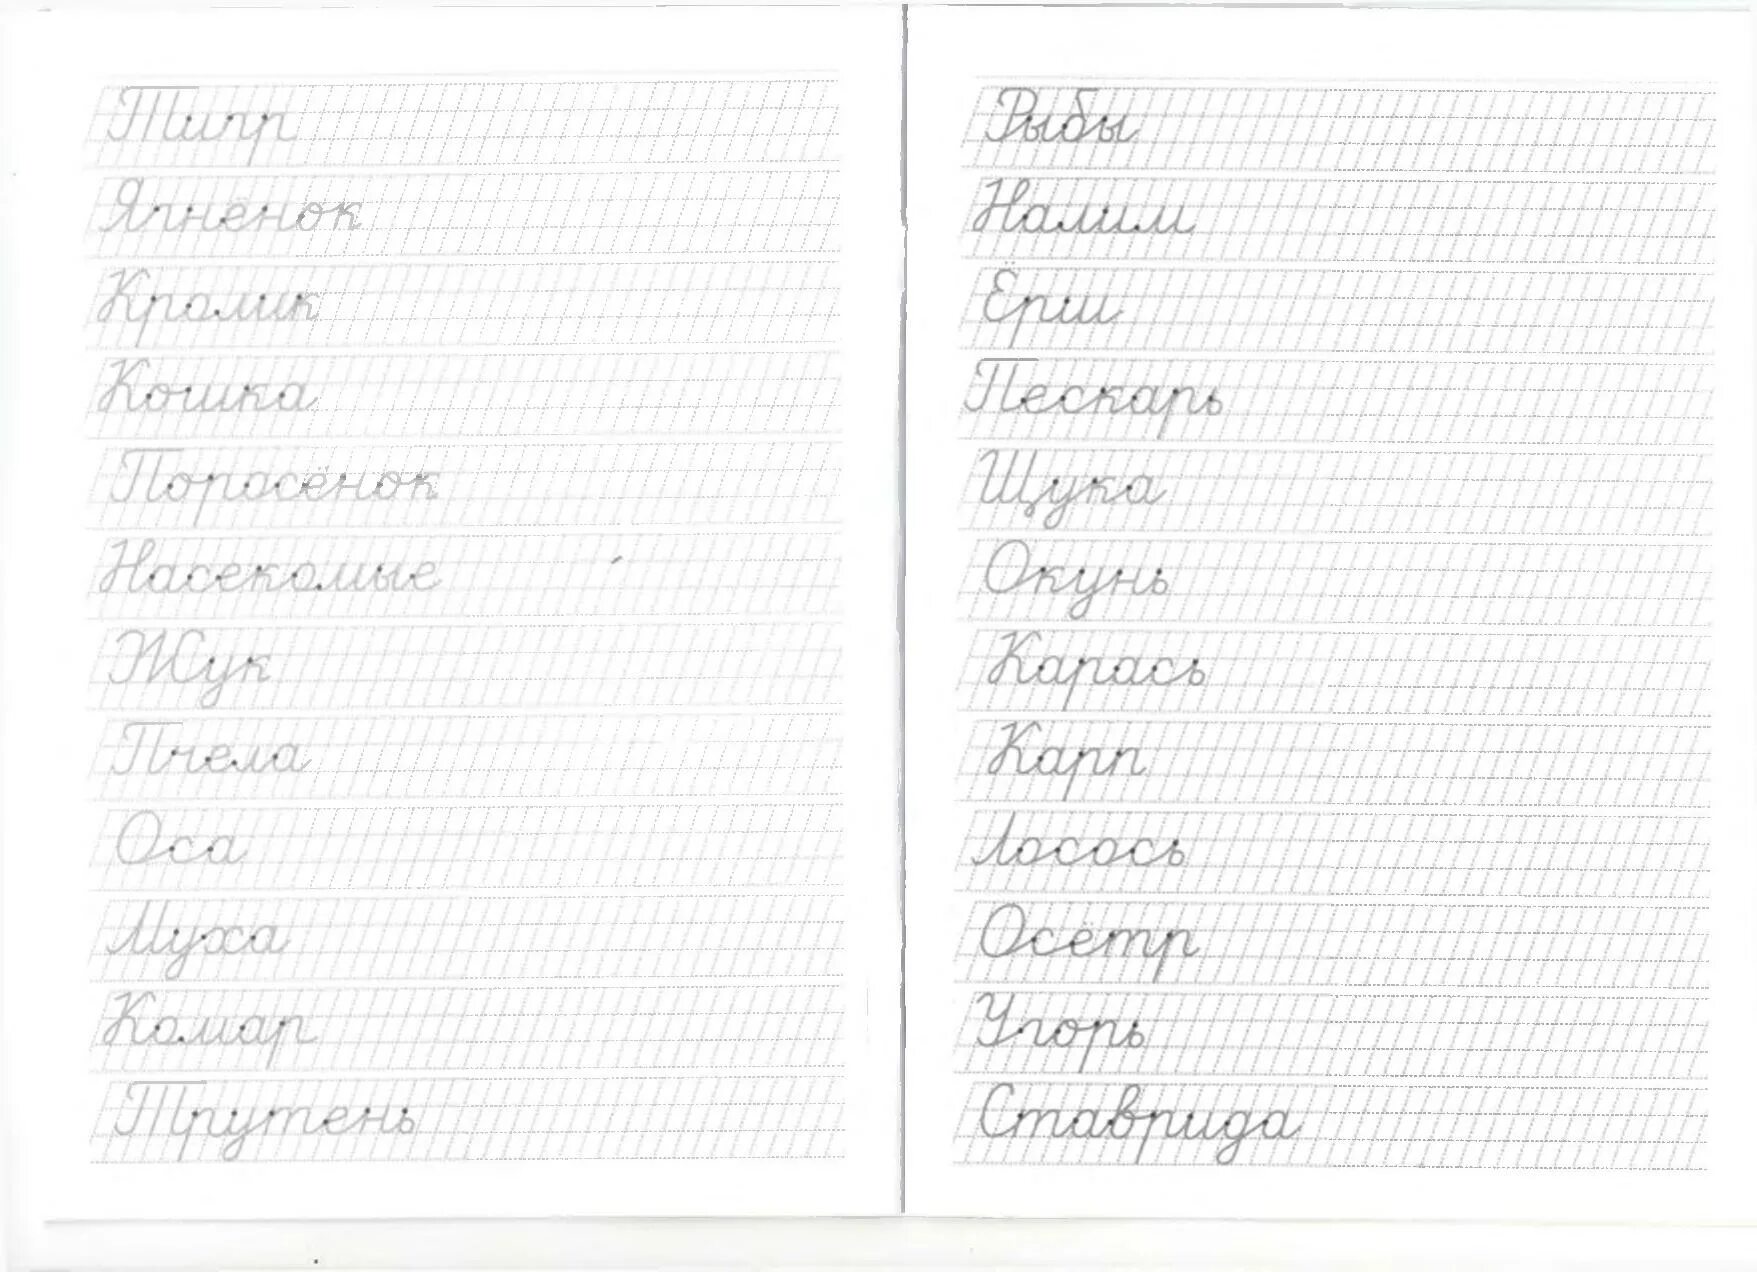 Тигр
Ягнёнок
Кролик
Кошка
Поросёнок
Насекомые
Жук
Пчела
Оса
Муха
Комар
Трутень
Рыбы
Налим
Ёрш
Пескарь
Щука
Окунь
Карась
Карп
Лосось
Осётр
Угорь
Ставрида